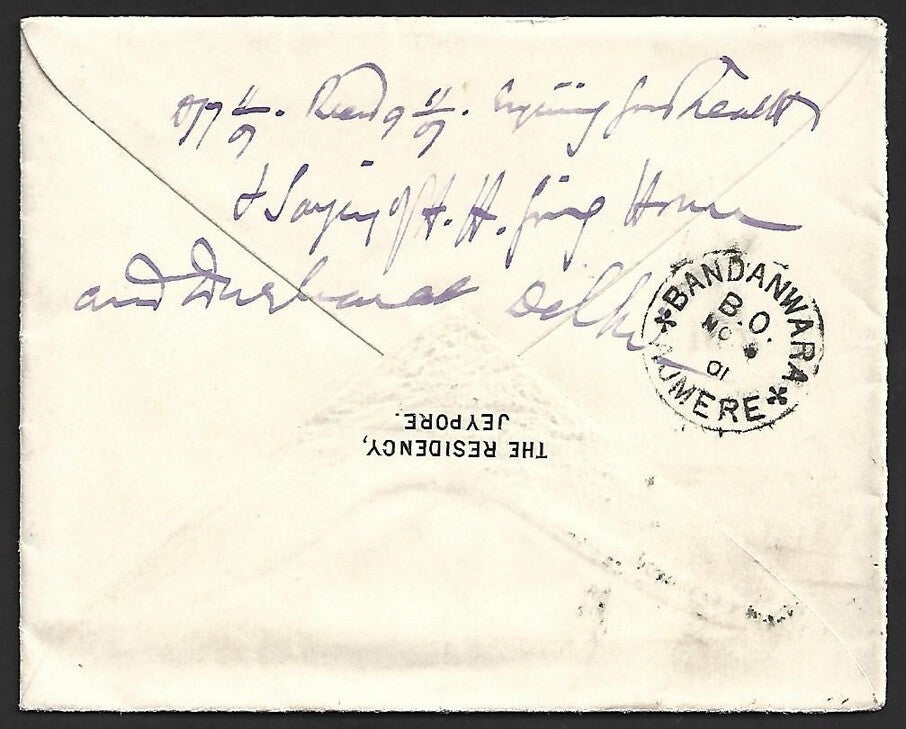 of 7 11/01. Recd 9 11/01. Enquiring good health
& Saying of H. H. going Home
and Durbar at Delhi
BANDANWARA
B.O.
NO
01
AJMERE
THE RESIDENCY,
JEYPORE.